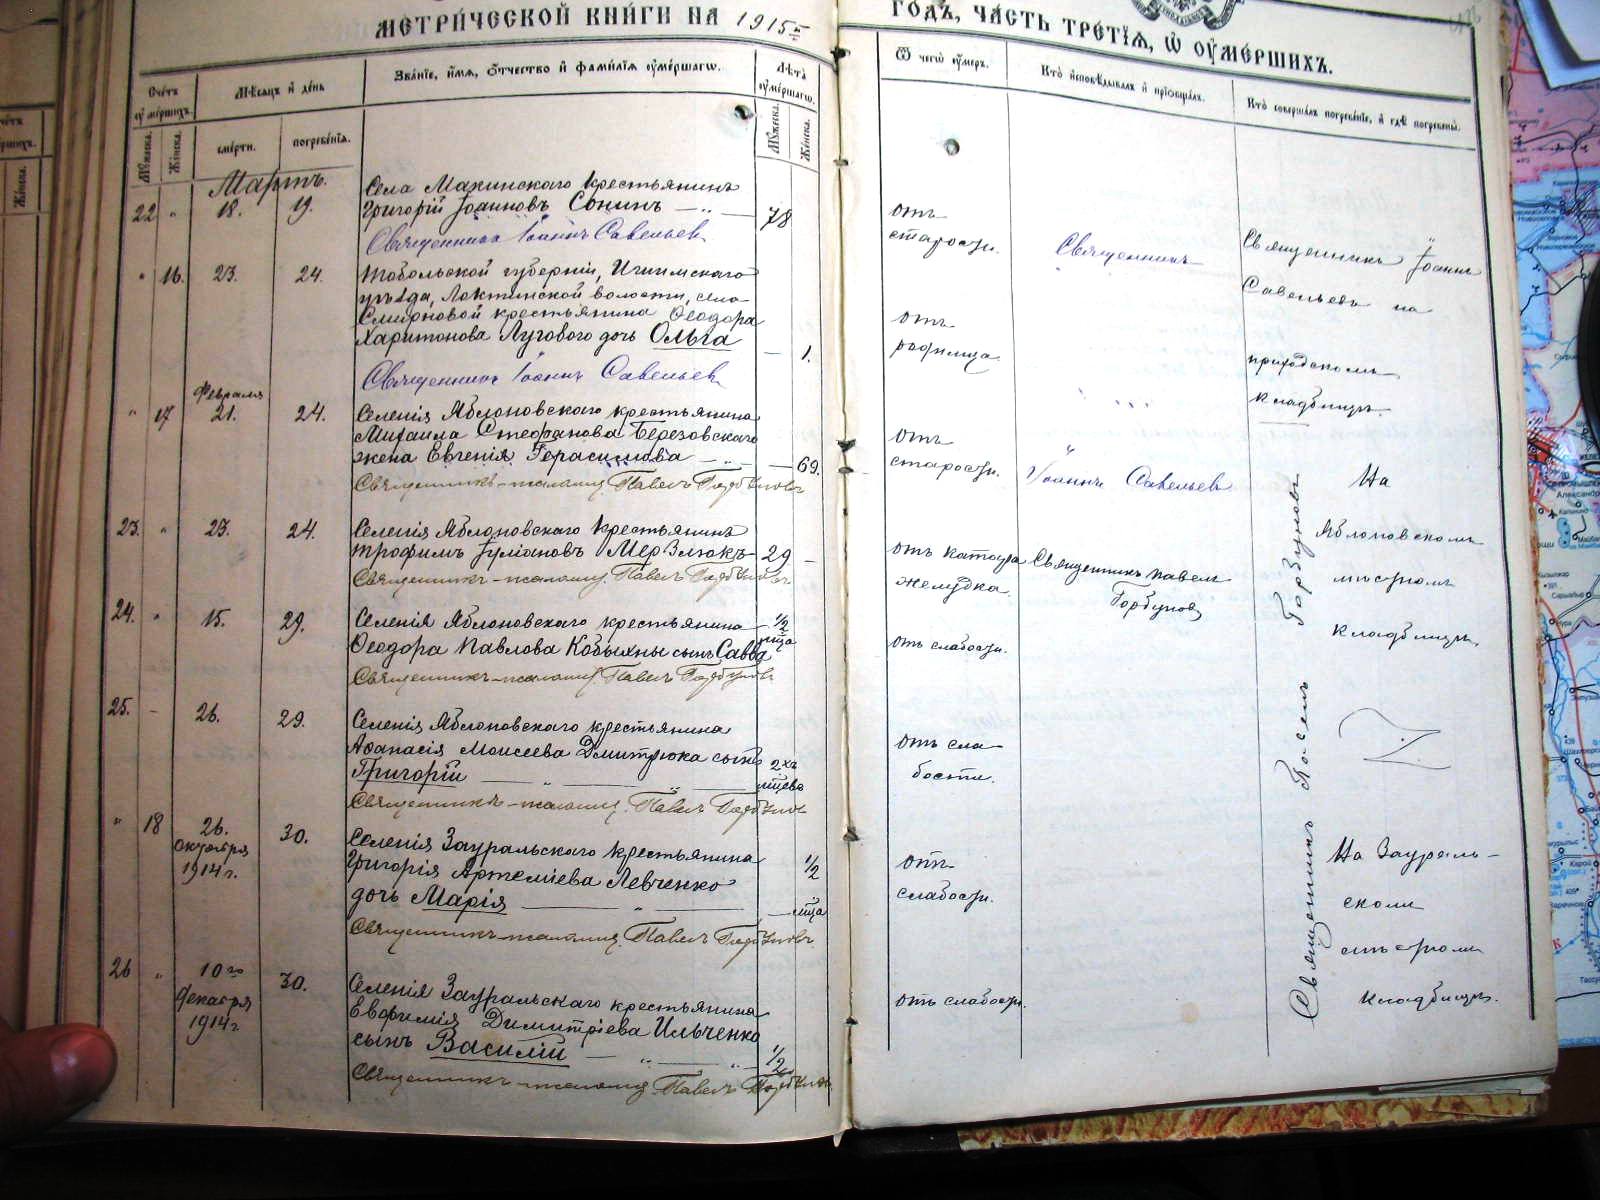 МЕТРИЧЕСКОЙ КНИГИ НА 1915
ГОДЪ, ЧАСТЬ ТРЕТІЯ, Ѿ ОУМЕРШИХЪ.
Счетъ оумершихъ.
Мѣсяцъ и день
Званіе, имя, отчество и фамилія оумершагѡ.
Лѣта оумершагѡ.
Мужеска.
Женска.
смерти.
погребенія.
Мужеска.
Женска.
Ѿ чегѡ оумеръ.
Кто исповѣдывалъ и пріобщалъ.
Кто совершалъ погребеніе, и гдѣ погребены.
Мартъ.
22 " 18. 19.
Села Макинскаго крестьянинъ
Григорій Іоанновъ Сонинъ 78
Священникъ Іоаннъ Савельевъ
отъ
старости.
Священникъ
Священникъ Іоаннъ
Савельевъ на
приходскомъ
кладбищѣ.
" 16. 23. 24.
Тобольской губерніи, Ишимскаго
уѣзда, Локтинской волости, села
Смирновой крестьянина Ѳеодора
Харитонова Лугового дочь Ольга 1.
Священникъ Іоаннъ Савельевъ
отъ
Февраля
" 17 21. 24.
Селенія Яблоновскаго крестьянина
Михаила Стефанова Березовскаго
жена Евгенія Герасимова 69.
Священникъ Павелъ Горбуновъ
отъ
старости.
Іоаннъ Савельевъ
На
Яблоновскомъ
мѣстномъ
кладбищѣ.
23. " 23. 24.
Селенія Яблоновскаго крестьянинъ
Трофимъ Іуліановъ Мерзлюкъ 29
Священникъ Павелъ Горбуновъ
отъ катарра
желудка.
Священникъ Павелъ
Горбуновъ
24. " 15. 29.
Селенія Яблоновскаго крестьянина 1/2
Ѳеодора Павлова Кобыхны сынъ Савва
Священникъ Павелъ Горбуновъ
отъ слабости.
25. 26. 29.
Селенія Яблоновскаго крестьянина
Аѳанасія Моисеева Дмитрюка сынъ 2хъ
Григорій мцевъ
Священникъ Павелъ Горбуновъ
отъ сла-
бости.
" 18 26. 30.
октября
1914 г.
Селенія Зауральскаго крестьянина
Григорія Артеміева Левченко 1/2
дочь Марія мца
Священникъ Павелъ Горбуновъ
отъ
слабости.
На Заураль-
скомъ
мѣстномъ
кладбищѣ.
26 " 10го 30.
декабря
1914 г
Селенія Зауральскаго крестьянина
Евфимія Димитріева Ильченко
сынъ Василій 1/2
Священникъ Павелъ Горбуновъ
отъ слабости.
Священникъ Павелъ Горбуновъ